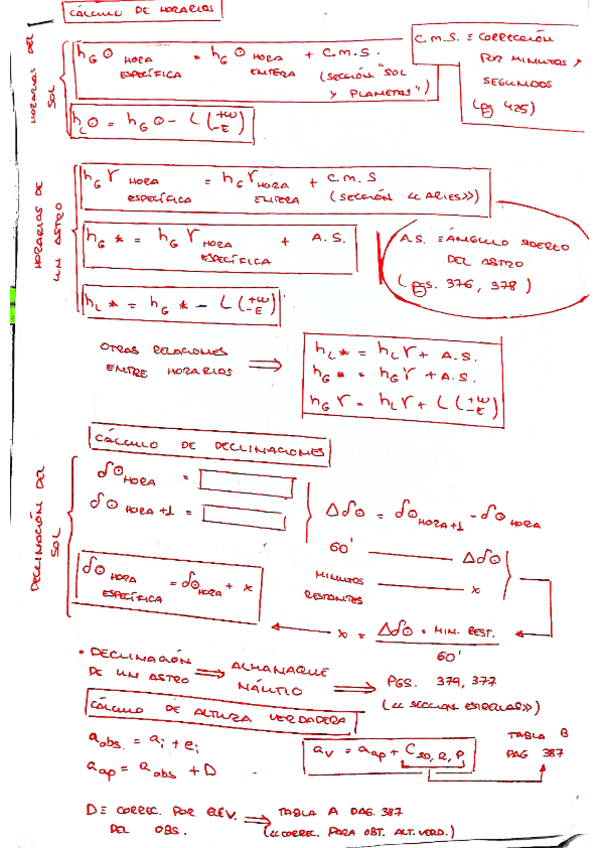 CÁLCULO DE HORARIOS
HORARIOS DEL SOL
hG☉ HORA ESPECÍFICA = hG☉ HORA ENTERA + C.M.S. (SECCIÓN "SOL Y PLANETAS")
C.M.S. ≡ CORRECCIÓN
POR MINUTOS Y
SEGUNDOS
(pg 425)
hL☉ = hG☉ - L (+W -E)
HORARIOS DE UN ASTRO
hGϒ HORA ESPECÍFICA = hGϒ HORA ENTERA + C.M.S (SECCIÓN <<ARIES>>)
hG* = hGϒ HORA ESPECÍFICA + A.S.
A.S. ≡ ÁNGULO SIDEREO
DEL ASTRO
(pgs. 376, 378)
hL* = hG* - L (+W -E)
OTRAS RELACIONES
ENTRE HORARIOS ⟹
hL* = hLϒ + A.S.
hG* = hGϒ + A.S.
hGϒ = hLϒ + L (+W -E)
CÁLCULO DE DECLINACIONES
DECLINACIÓN DEL SOL
δ☉ HORA =
δ☉ HORA+1 =
Δδ☉ = δ☉ HORA+1 - δ☉ HORA
60' ——— Δδ☉
MINUTOS RESTANTES ——— x
δ☉ HORA ESPECÍFICA = δ☉ HORA + x
x = Δδ☉ · MIN. REST. / 60'
• DECLINACIÓN DE UN ASTRO ⟹ ALMANAQUE NÁUTIO ⟹ PGS. 379, 377
(<<SECCION ESTRELLAS>>)
CÁLCULO DE ALTURA VERDADERA
aobs. = ai + ei
aap = aobs + D
av = aap + CSD, R, P
TABLA B
PAG 387
D ≡ CORREC. POR ELEV. DEL OBS. ⟹ TABLA A PAG. 387
(<<CORREC. PARA OBT. ALT. VERD.)